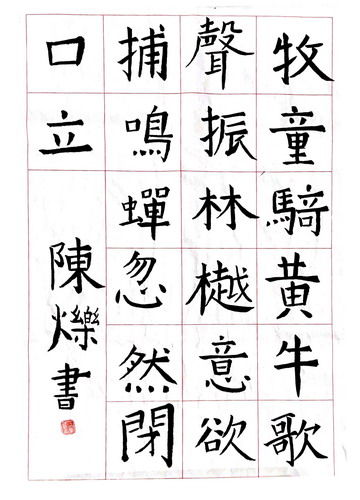 牧童騎黃牛歌
聲振林樾意欲
捕鳴蟬忽然閉
口立
陳爍書